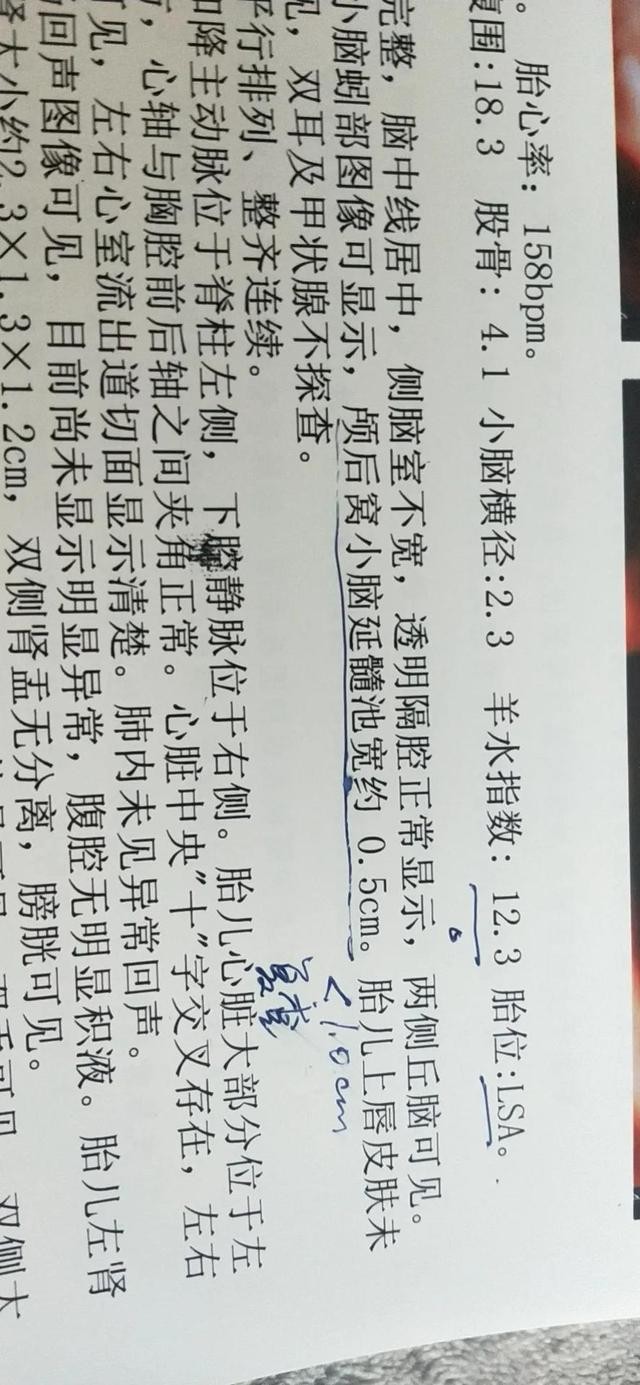 。 胎心率: 158bpm。
复围:18.3 股骨: 4.1 小脑横径:2.3 羊水指数: 12.3 胎位:LSA。
完整, 脑中线居中, 侧脑室不宽, 透明隔腔正常显示, 两侧丘脑可见。
小脑蚓部图像可显示, 颅后窝小脑延髓池宽约 0.5cm。 胎儿上唇皮肤未
<1.0cm
见, 双耳及甲状腺不探查。
平行排列、整齐连续。
和降主动脉位于脊柱左侧, 下腔静脉位于右侧。 胎儿心脏大部分位于左
, 心轴与胸腔前后轴之间夹角正常。 心脏中央"十"字交叉存在, 左右
可见, 左右心室流出道切面显示清楚。 肺内未见异常回声。
回声图像可见, 目前尚未显示明显异常, 腹腔无明显积液。 胎儿左肾
肾大小约2.3×1.3×1.2cm, 双侧肾盂无分离, 膀胱可见。
双侧大